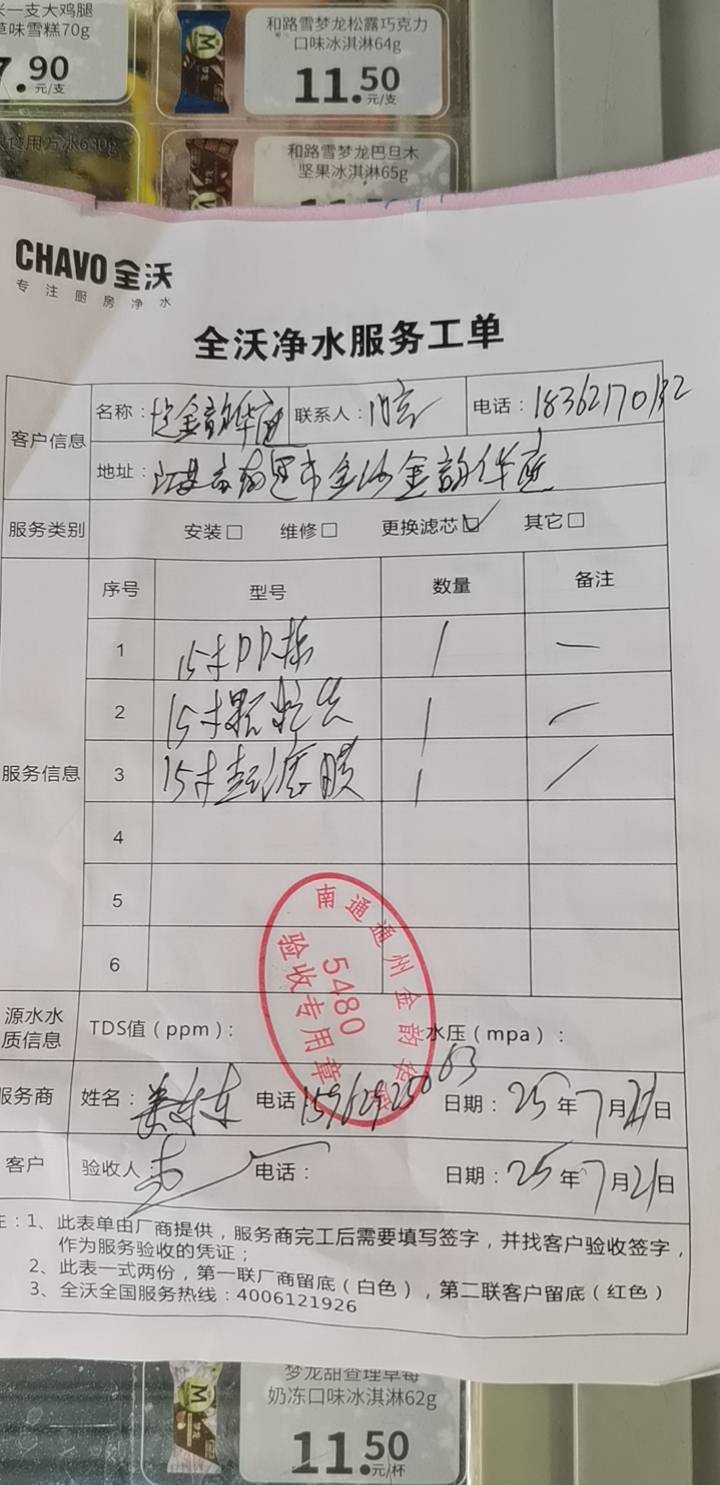 大鸡腿
味雪糕70g
7.90
元/支
和路雪梦龙松露巧克力
口味冰淇淋64g
11.50
元/支
食用方冰630g
和路雪梦龙巴旦木
坚果冰淇淋65g
CHAVO 全沃
专注厨房净水
全沃净水服务工单
客户信息
名称：金韵华庭 联系人： 电话：
地址：江苏省南通市金沙金韵华庭
服务类别 安装□ 维修□ 更换滤芯☑ 其它□
服务信息
序号 型号 数量 备注
1 15寸PP棉 1 —
2 15寸颗粒炭 1 —
3 15寸超滤膜 1 —
4
5
6
南通通州金韵华
5480
验收专用章
源水水质信息 TDS值（ppm）： 水压（mpa）：
服务商 姓名： 电话 日期：25年7月21日
客户 验收人： 电话： 日期：25年7月21日
注：1、此表单由厂商提供，服务商完工后需要填写签字，并找客户验收签字，
作为服务验收的凭证；
2、此表一式两份，第一联厂商留底（白色），第二联客户留底（红色）
3、全沃全国服务热线：4006121926
梦龙甜查理草莓
奶冻口味冰淇淋62g
11.50
元/杯